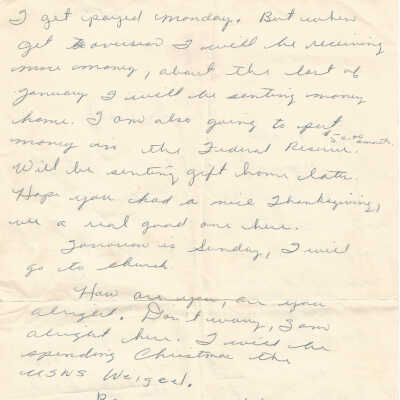 I get payed monday. But when
get to oversea I will be receiving
more money, about the last of
January I will be senting money
home. I am also going to put
$5.00 a month.
money in the Federal Reserve.
Will be senting gift home later.
Hope you had a nice Thanksgiving,
we a real good one here.
Tomorrow is Sunday, I will
go to church
How are you, are you
alright. Don't worry, I am
alright here. I will be
spending Christmas the
USNS Weigel.